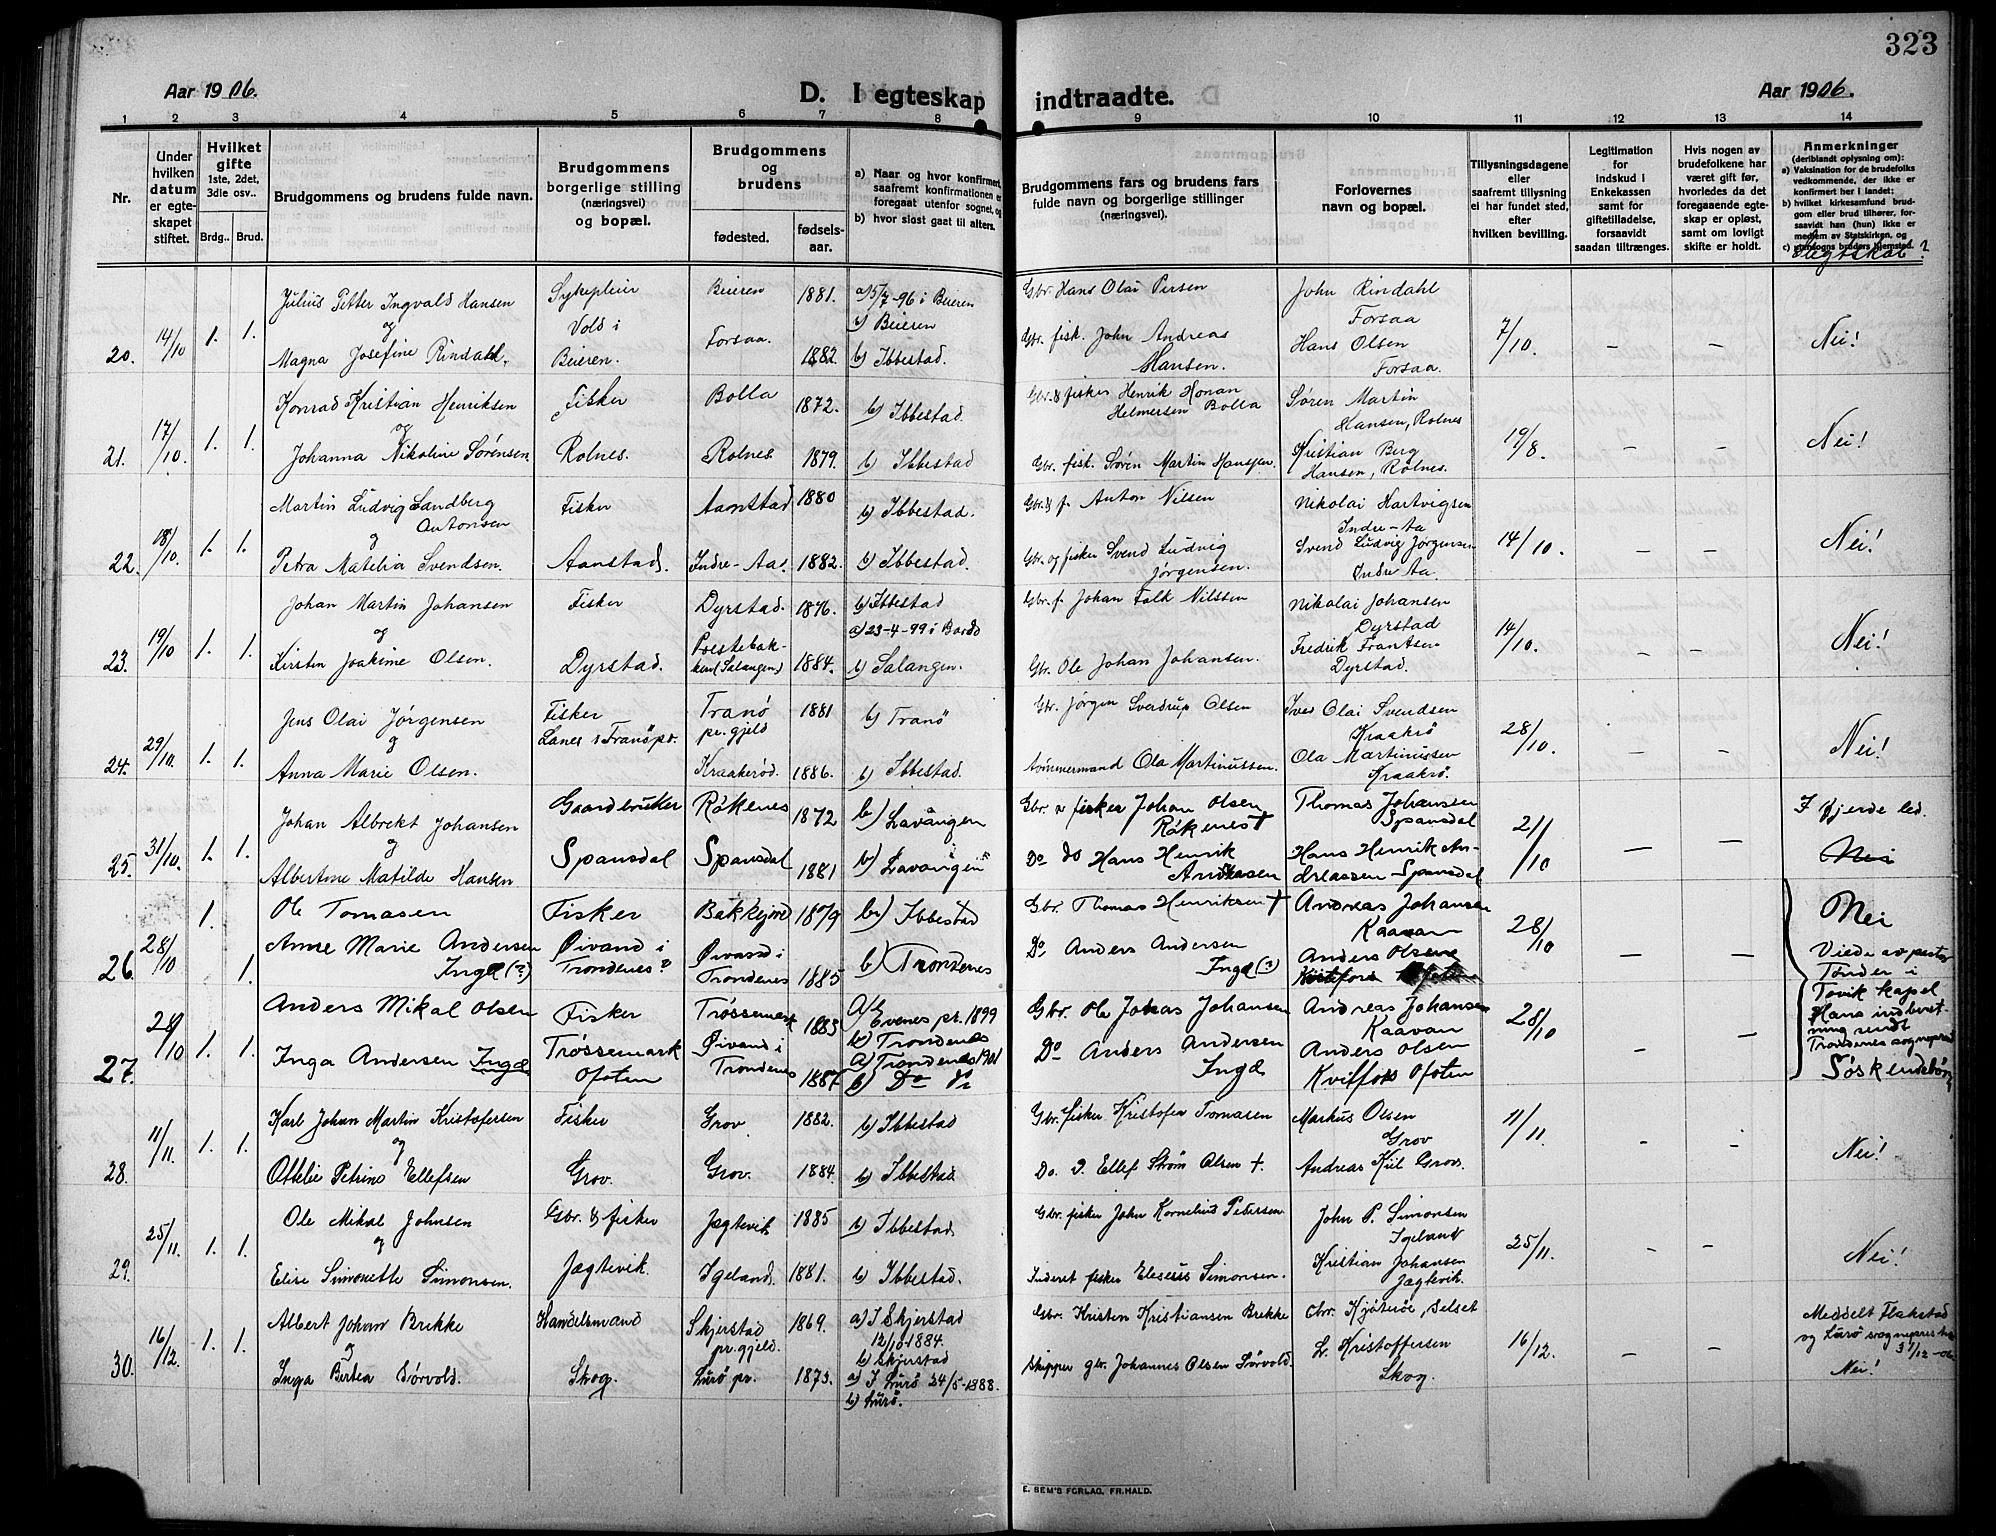 323
Aar 1906.
D. I egteskap indtraadte.
Aar 1906.
1 2 3 4 5 6 7 8 9 10 11 12 13 14
Nr.
Under hvilken datum er egteskapet stiftet.
Hvilket gifte 1ste, 2det, 3die osv..
Brdg.. Brud.
Brudgommens og brudens fulde navn.
Brudgommens borgerlige stilling (næringsvei) og bopæl.
Brudgommens og brudens
fødested. fødselsaar.
a) Naar og hvor konfirmert, saafremt konfirmationen er foregaat utenfor sognet, og
b) hvor sidst gaat til alters.
Brudgommens fars og brudens fars fulde navn og borgerlige stillinger (næringsvei).
Forlovernes navn og bopæl.
Tillysningsdagene eller saafremt tillysning ei har fundet sted, efter hvilken bevilling.
Legitimation for indskud i Enkekassen samt for giftetilladelse, forsaavidt saadan tiltrænges.
Hvis nogen av brudefolkene har været gift før, hvorledes da det foregaaende egteskap er opløst, samt om lovligt skifte er holdt.
Anmerkninger (deriblandt oplysning om):
a) Vaksination for de brudefolks vedkommende, der ikke er konfirmert her i landet:
b) hvilket kirkesamfund brudgom eller brud tilhører, forsaavidt han (hun) ikke er medlem av Statskirken, og
c) utensogns bruders hjemsted.
Slegtskab?
20. 14/10 1. 1. Julius Petter Ingvald Hansen og Magna Josefine Rindahl. Sykepleier Vold i Beieren. Beieren 1881. a) 5/7-96 i Beieren b) Beieren Forsaa. 1882 b) Ibbestad. Gbr. Hans Olai Persen Gbr. fisk. John Andreas Hansen. John Rindahl Forsaa Hans Olsen Forsaa. 7/10. – – Nei!
21. 17/10. 1. 1. Konrad Kristian Henriksen og Johanna Nikoline Sørensen. Fisker Rolnes. Bolla 1872. b) Ibbestad. Rolnes 1879. b) Ibbestad Gbr. & fisker Henrik Honan Helmersen Bolla Gbr. fisk. Søren Martin Hansen. Søren Martin Hansen, Rolnes Kristian Berg Hansen, Rolnes. 19/8. – – Nei!
22. 18/10. 1. 1. Martin Ludvig Sandberg Antonsen og Petra Matelia Svendsen. Fisker Aanstad. Aanstad 1880 b) Ibbestad. Indre-Aa. 1882. b) Ibbestad. Gbr. & f. Anton Nilsen Gbr. og fisker Svend Ludvig Jørgensen. Nikolai Hartvigsen Indre-Aa Svend Ludvig Jørgensen Indre Aa. 14/10. – – Nei!
23. 19/10 1. 1. Johan Martin Johansen og Kirsten Joakime Olsen. Fisker Dyrstad. Dyrstad. 1876. b) Ibbestad Prestebakken (Salangen) 1884. a) 23-4-99 i Bardo b) Salangen. Gbr. f. Johan Falk Nilssen Gbr. Ole Johan Johansen. Nikolai Johansen Dyrstad Fredrik Frantsen Dyrstad. 14/10. – – Nei!
24. 29/10. 1. 1. Jens Olai Jørgensen og Anna Marie Olsen. Fisker Lanes i Tranö pr. Tranö pr. gjeld 1881 b) Tranö Kraakerød. 1886. b) Ibbestad. Gbr. Jørgen Sverdrup Olsen tømmermand Ola Martinussen. Iver Olai Svendsen Kraakrö Ola Martinussen Kraakrö. 28/10. – – Nei!
25. 31/10. 1. 1. Johan Albrekt Johansen og Albertine Matilde Hansen Gaardbruker Spansdal Røkenes 1872 b) Lavangen Spansdal 1881 b) Lavangen Gbr & fisker Johan Olsen Røkenes † Do do Hans Henrik Andreasen Thomas Johansen Spansdal Hans Henrik Andreassen Spansdal 21/10 – – I fjerde led. Nei
26. 28/10 1. 1. Ole Tomasen Anne Marie Andersen Inga (?) Fisker Øivand i Trondenes? Bakkejord 1879 b) Ibbestad Øivand i Trondenes 1885 b) Trondenes Gbr. Thomas Henriksen † Do Anders Andersen Inga (?) Andreas Johansen Kaavan Anders Olsen 28/10 – – Nei Viede av pastor Tønder i Tovik kapel Hans indberetning sendt Trondenes sogneprest
27. 28/10 1. 1. Anders Mikal Olsen Inga Andersen Inga Fisker Trøssemark Ofoten Trøssemark 1883 a/ Evenes pr. 1899 b) Trondenes Øivand i Trondenes 1887 a) Trondenes 1901 b) Do Gbr. Ole Johas Johansen Do Anders Andersen Inga Andreas Johansen Kaavan Anders Olsen Kvitfors Ofoten 28/10 – – Søskendebørn
28. 11/11. 1. 1. Karl Johan Martin Kristofersen og Ottelie Petrine Ellefsen Fisker Grov. Grov 1882. b) Ibbestad Grov. 1884. b) Ibbestad Gbr. fisker Kristofer Tomasen Do. D. Ellef Strøm Olsen †. Markus Olsen Grov Andreas Kiil Grov. 11/11. – – Nei!
29. 25/11. 1. 1. Ole Mikal Johnsen og Elise Simonette Simonsen. Gbr. & fisker Jægtevik. Jægtevik 1885 b) Ibbestad Igeland. 1881. b) Ibbestad. Gbr. fisker John Kornelius Petersen Inderst fisker Eleseus Simonsen. John P. Simonsen Igeland Kristian Johansen Jægtevik. 25/11. – – Nei!
30. 16/12. 1. 1. Albert Johan Brekke og Inga Bertea Sørvold. Handelsmand Skog. Skjerstad pr.gjeld. 1869. a) I Skjerstad 12/10 1884. b) Skjerstad Lurö pr. 1873. a) I Lurö 24/5-1888. b) Lurö. Gbr. Kristen Kristiansen Brekke Skipper gbr. Johannes Olsen Sørvold. Chr. Kjøterøe, Selset L. Kristoffersen Skog. 16/12. – – Meddelt Flakstad og Lurö sogneprester 31/12-06 Nei!
E. SEM'S FORLAG, FR.HALD.